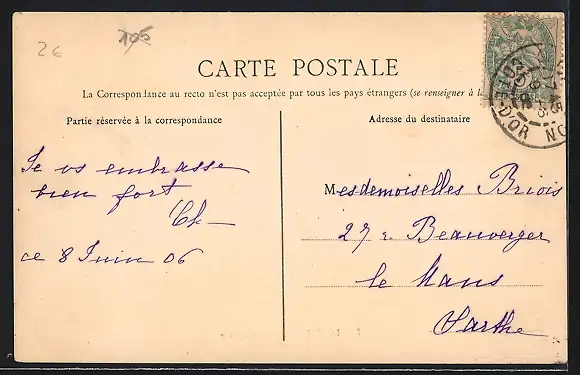 2€
10€
CARTE POSTALE
La Correspondance au recto n'est pas acceptée par tous les pays étrangers (se renseigner à la
Partie réservée à la correspondance
Je vs embrasse
bien fort
Ch
ce 8 Juin 06
Adresse du destinataire
Mesdemoiselles Briois
27 r. Beauverger
le Mans
Sarthe
D'OR